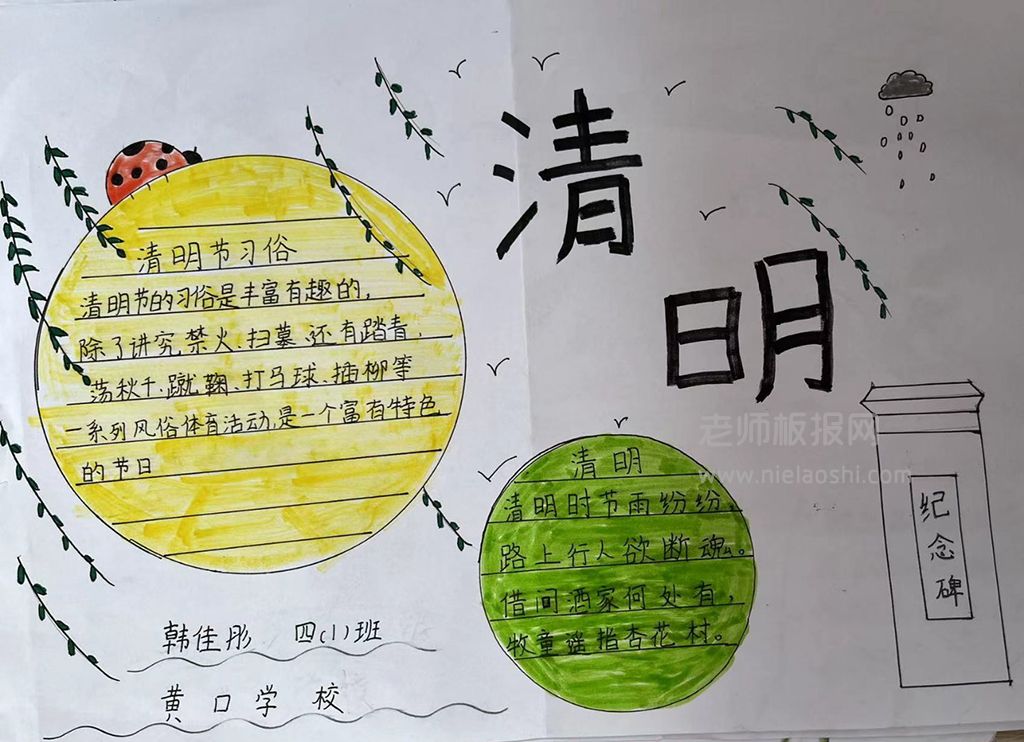 清明
清明节习俗
清明节的习俗是丰富有趣的，
除了讲究禁火、扫墓、还有踏青、
荡秋千、蹴鞠、打马球、插柳等
一系列风俗体育活动,是一个富有特色
的节日
清明
清明时节雨纷纷，
路上行人欲断魂。
借问酒家何处有，
牧童遥指杏花村。
纪念碑
韩佳彤 四(1)班
黄口学校
老师板报网
www.nielaoshi.com